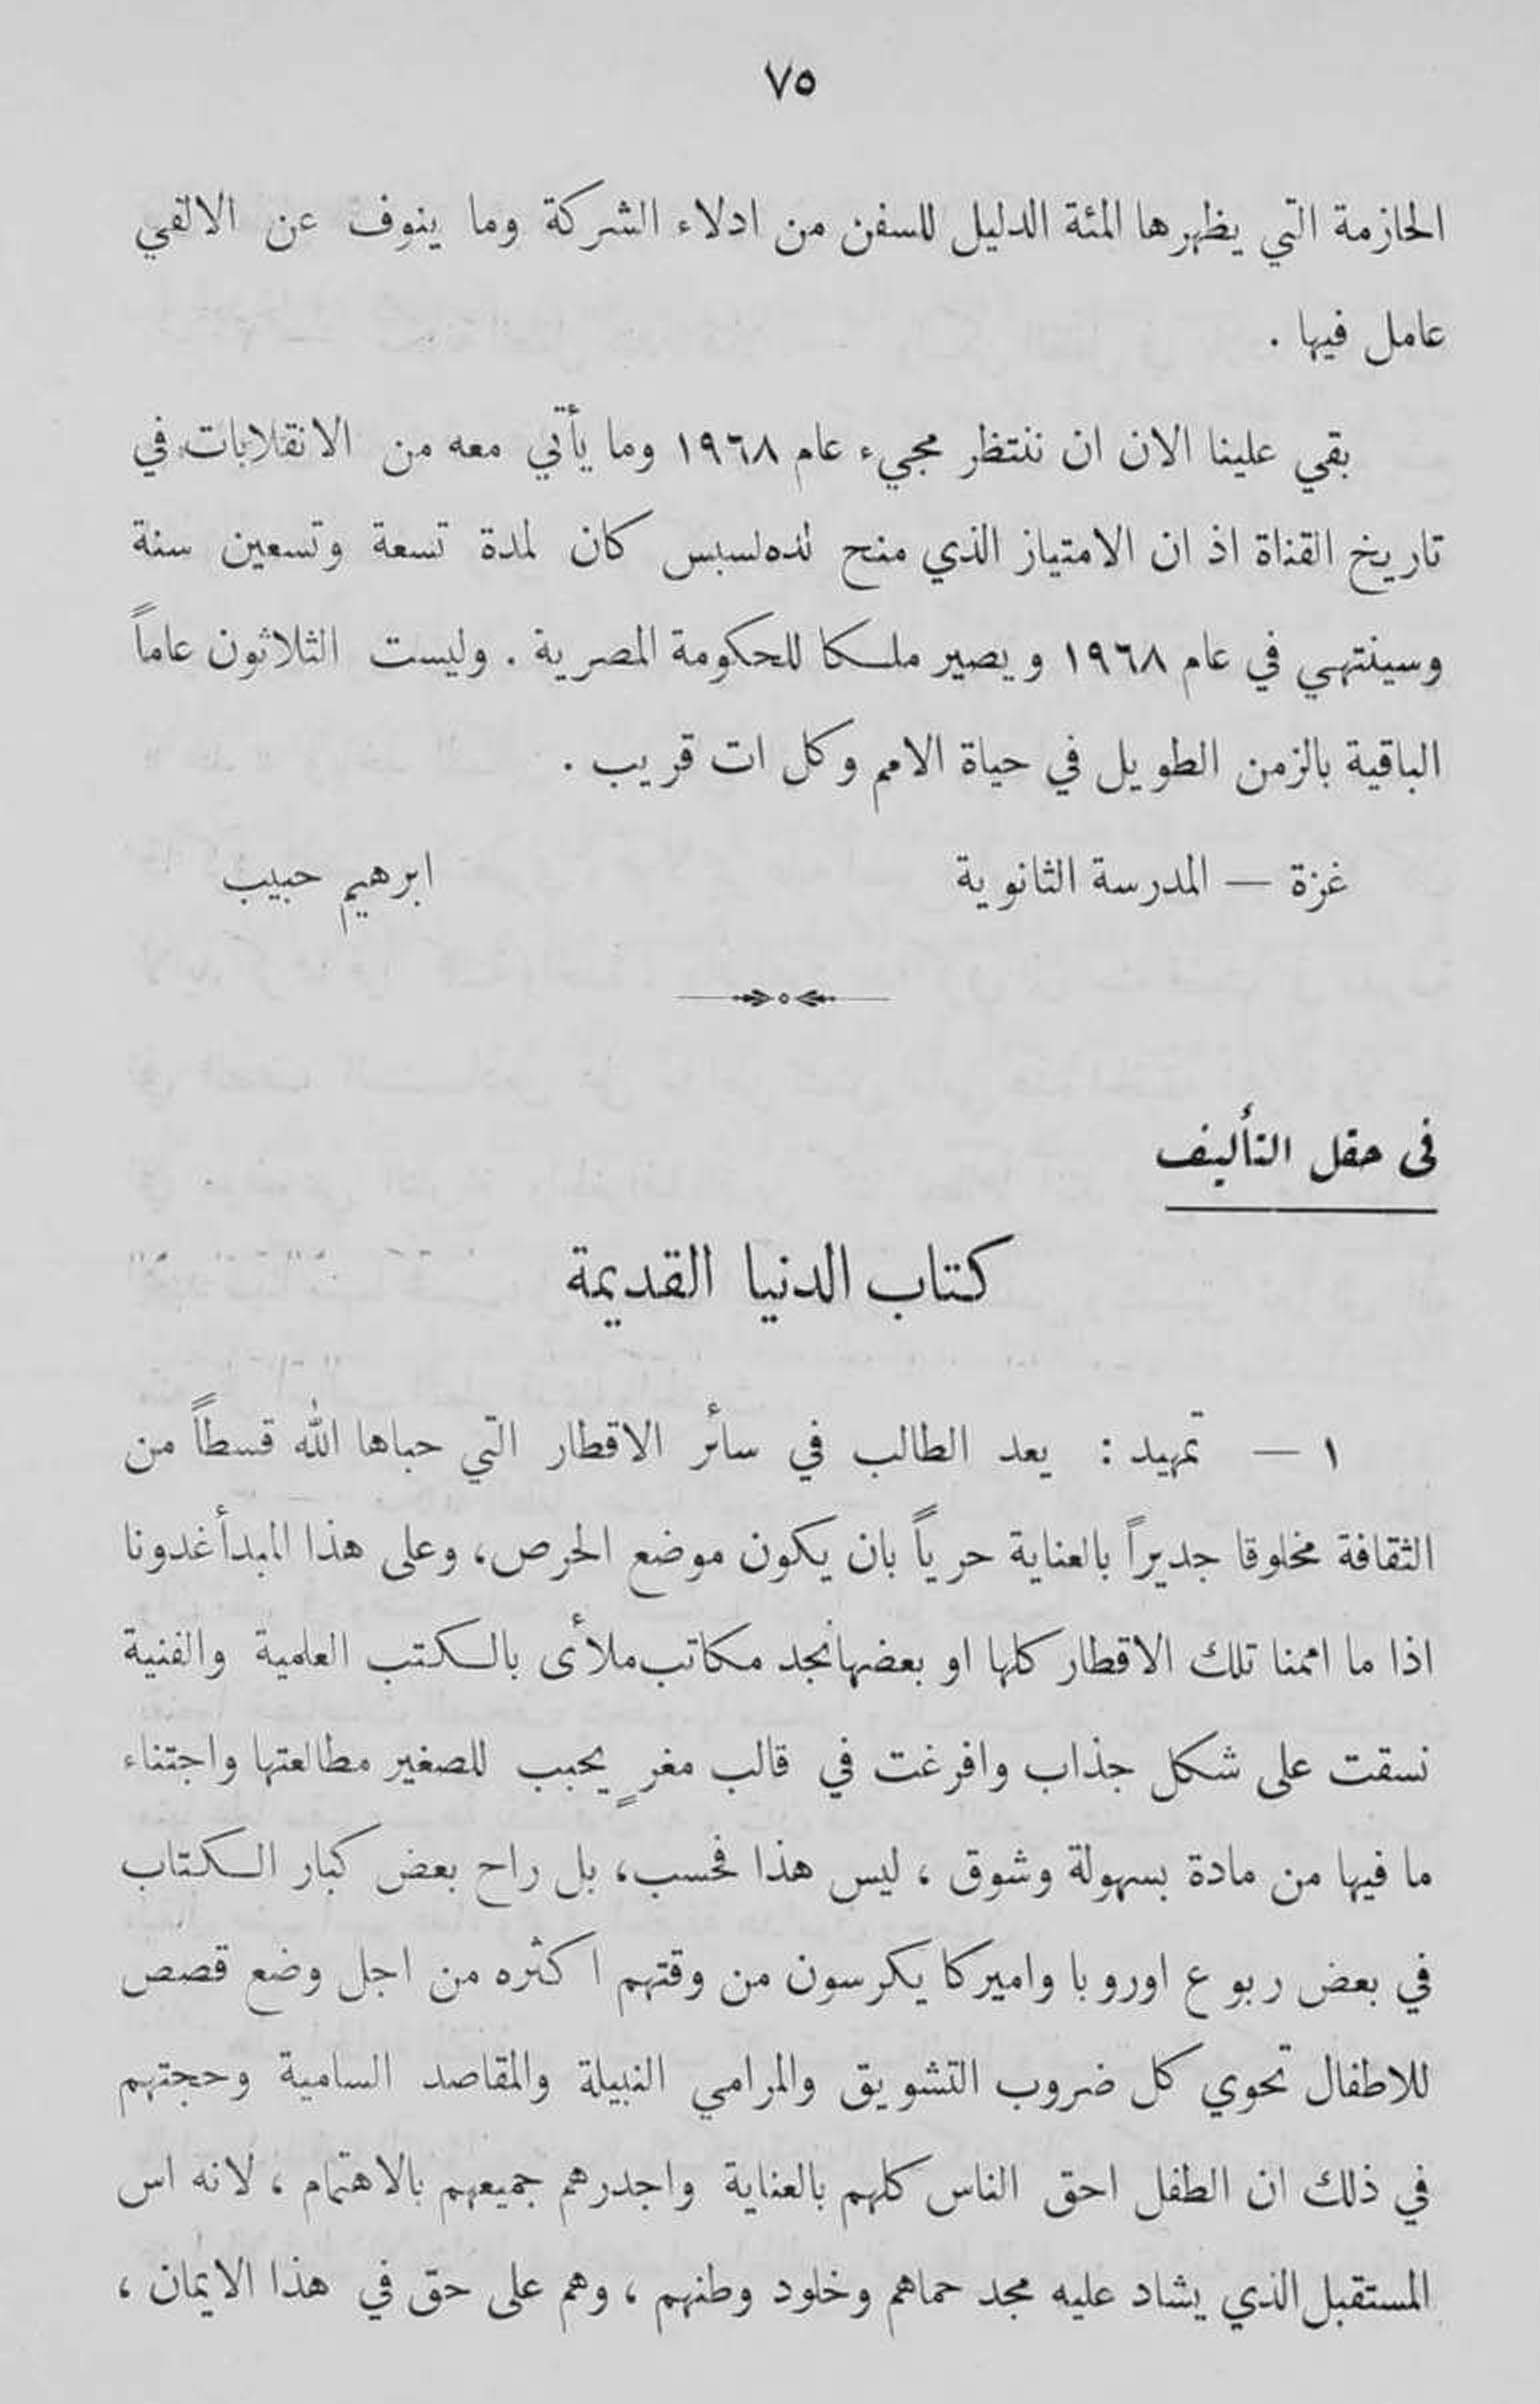 ٧٥
الحازمة التي يظهرها المئة الدليل للسفن من ادلاء الشركة وما ينوف عن الالفي
عامل فيها .
بقي علينا الان ان ننتظر مجيء عام ١٩٦٨ وما يأتي معه من الانقلابات في
تاريخ القناة اذ ان الامتياز الذي منح لده‌لسبس كان لمدة تسعة وتسعين سنة
وسينتهي في عام ١٩٦٨ ويصير ملكا للحكومة المصرية . وليست الثلاثون عاماً
الباقية بالزمن الطويل في حياة الامم وكل ات قريب .
غزة — المدرسة الثانوية ابرهيم حبيب
في حقل التأليف
كتاب الدنيا القديمة
١ — تمهيد : يعد الطالب في سائر الاقطار التي حباها الله قسطاً من
الثقافة مخلوقا جديراً بالعناية حرياً بان يكون موضع الحرص، وعلى هذا المبدأ غدونا
اذا ما اممنا تلك الاقطار كلها او بعضها نجد مكاتب ملأى بالكتب العلمية والفنية
نسقت على شكل جذاب وافرغت في قالب مغرٍ يحبب للصغير مطالعتها واجتناء
ما فيها من مادة بسهولة وشوق ، ليس هذا فحسب، بل راح بعض كبار الكتاب
في بعض ربوع اوروبا واميركا يكرسون من وقتهم اكثره من اجل وضع قصص
للاطفال تحوي كل ضروب التشويق والمرامي النبيلة والمقاصد السامية وحجتهم
في ذلك ان الطفل احق الناس كلهم بالعناية واجدرهم جميعهم بالاهتمام ، لانه اس
المستقبل الذي يشاد عليه مجد حماهم وخلود وطنهم ، وهم على حق في هذا الايمان ،